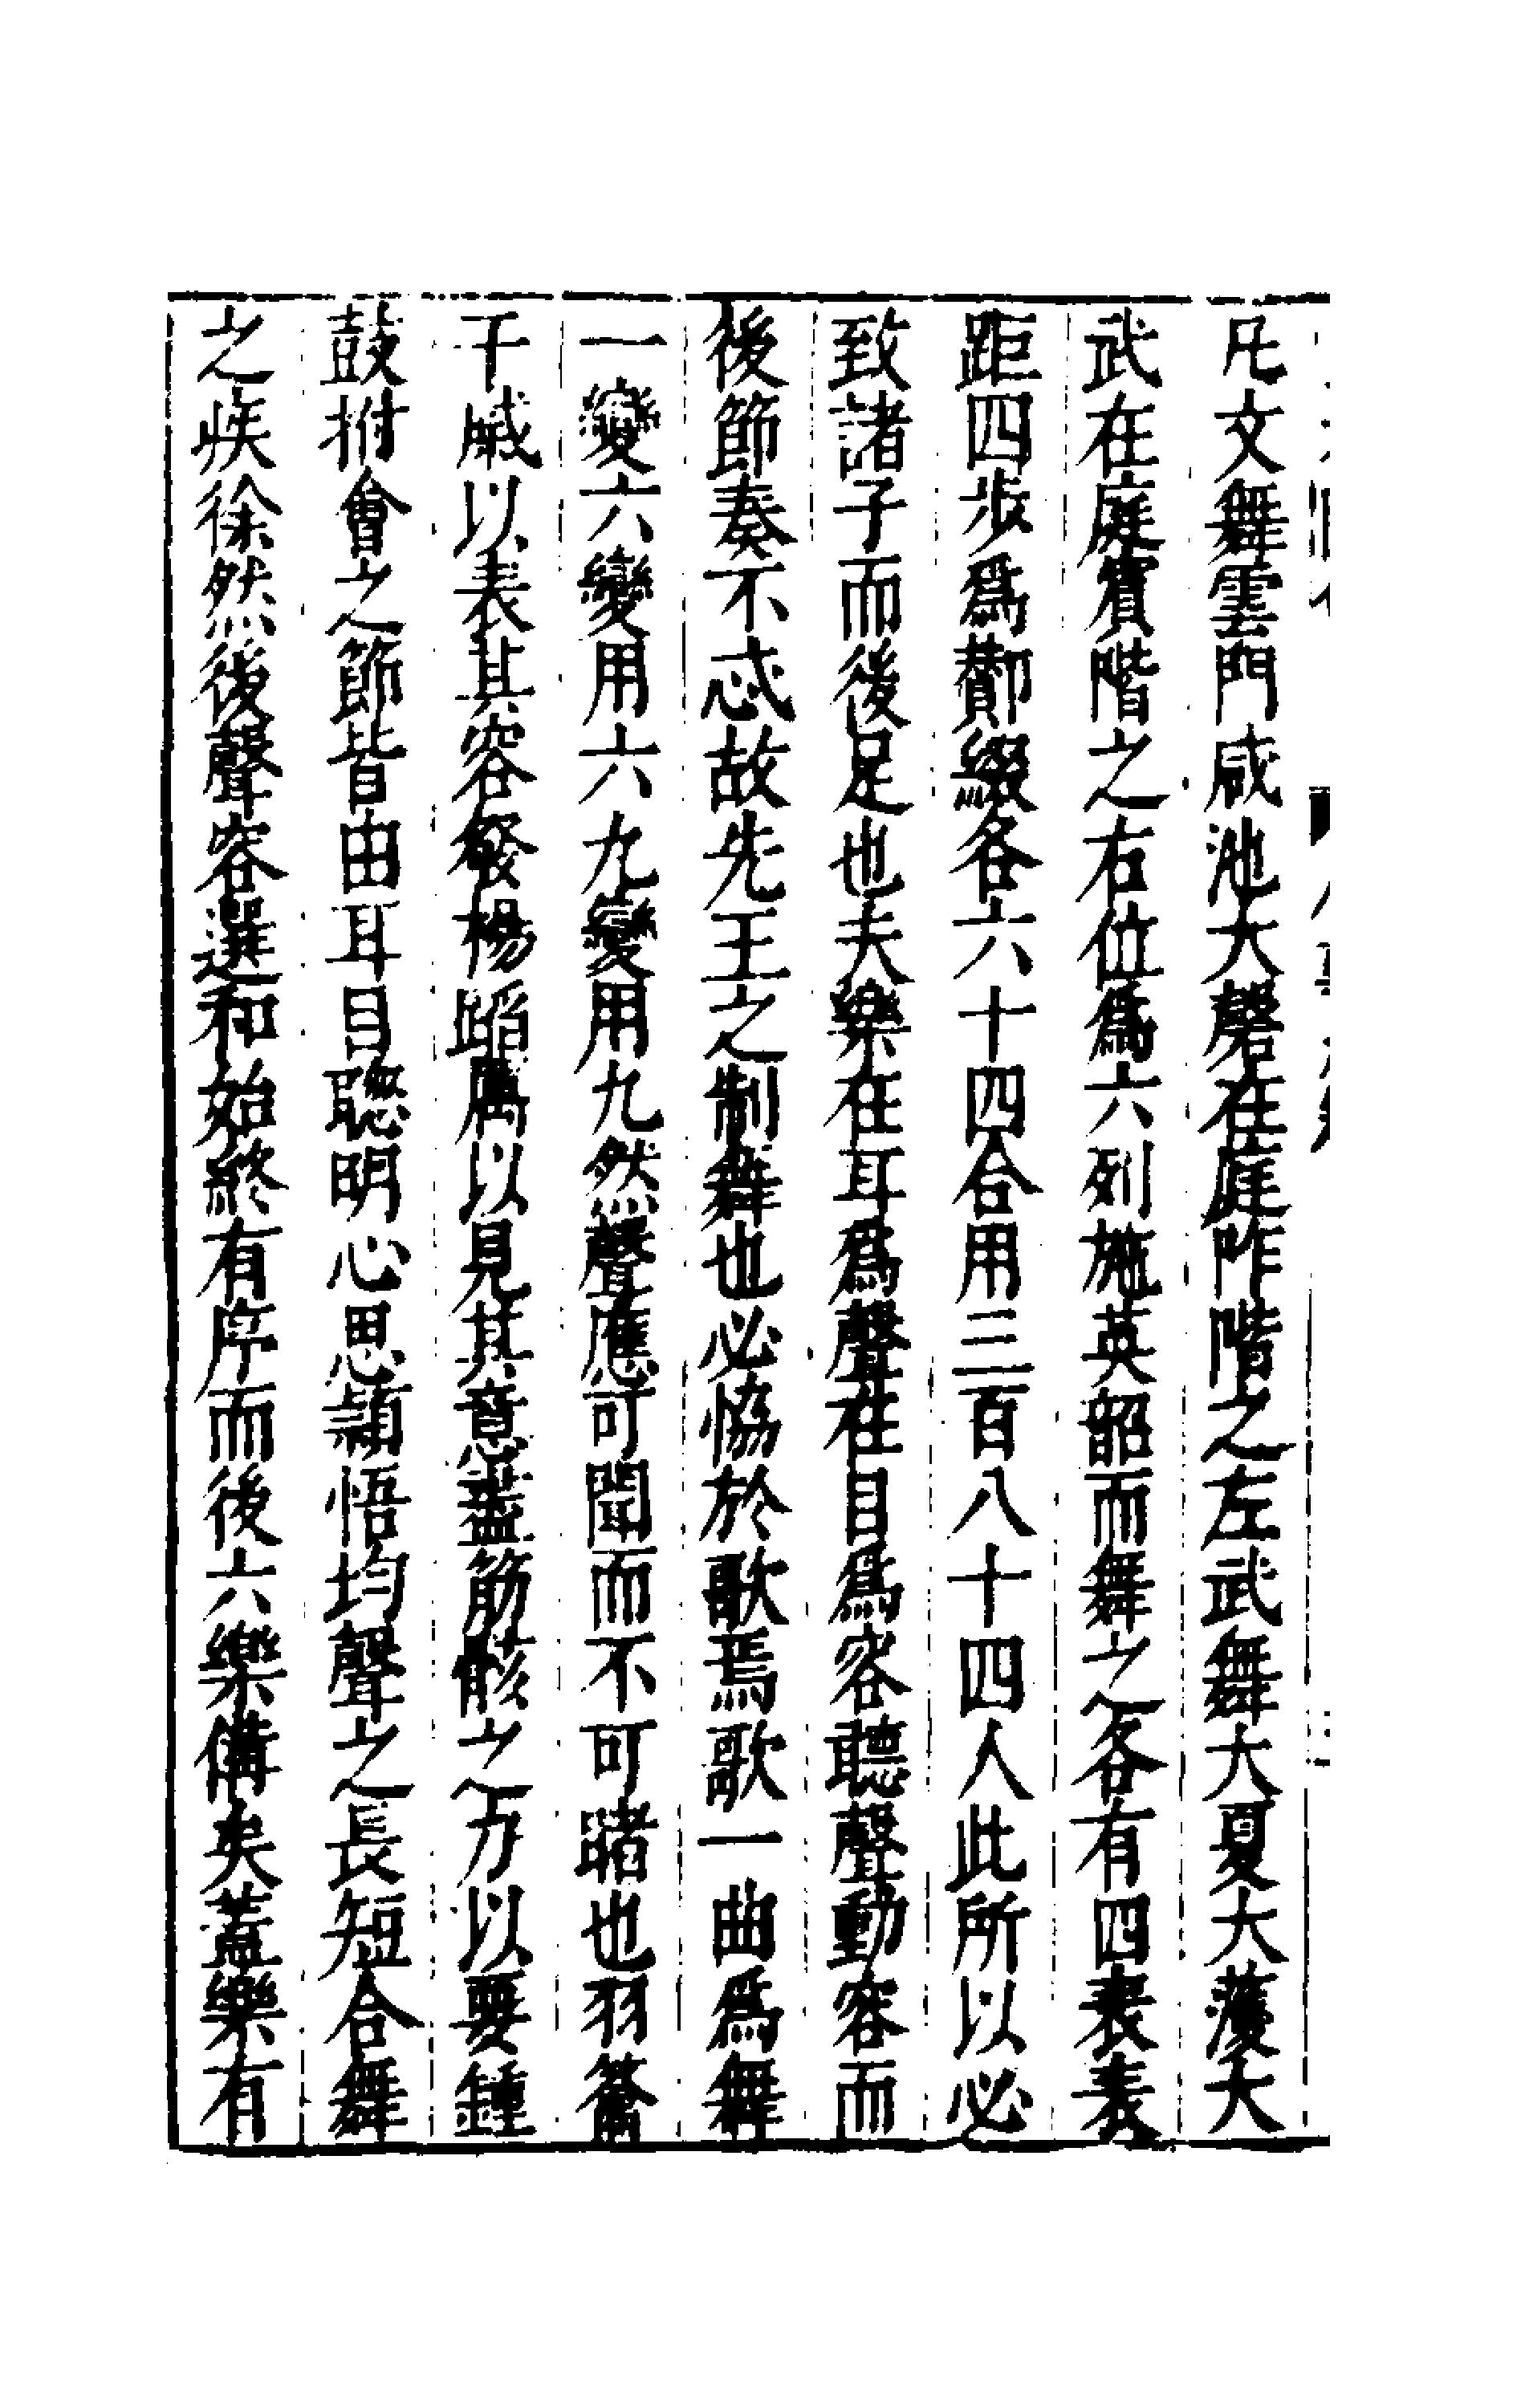 凡文舞雲門咸池大磬在庭阼階之左武舞大夏大濩大
武在庭賓階之右位爲六列施英韶而舞之各有四表表
距四步爲酇綴各六十四合用三百八十四人此所以必
致諸子而後足也夫樂在耳爲聲在目爲容聽聲動容而
後節奏不忒故先王之制舞也必恊於歌焉歌一曲爲舞
一變六變用六九變用九然聲應可聞而不可睹也羽籥
干戚以表其容發楊蹈厲以見其意盡筋骸之力以要鍾
鼓拊會之節皆由耳目聦明心思頴悟均聲之長短合舞
之疾徐然後聲容選和始終有序而後六樂備矣蓋樂有